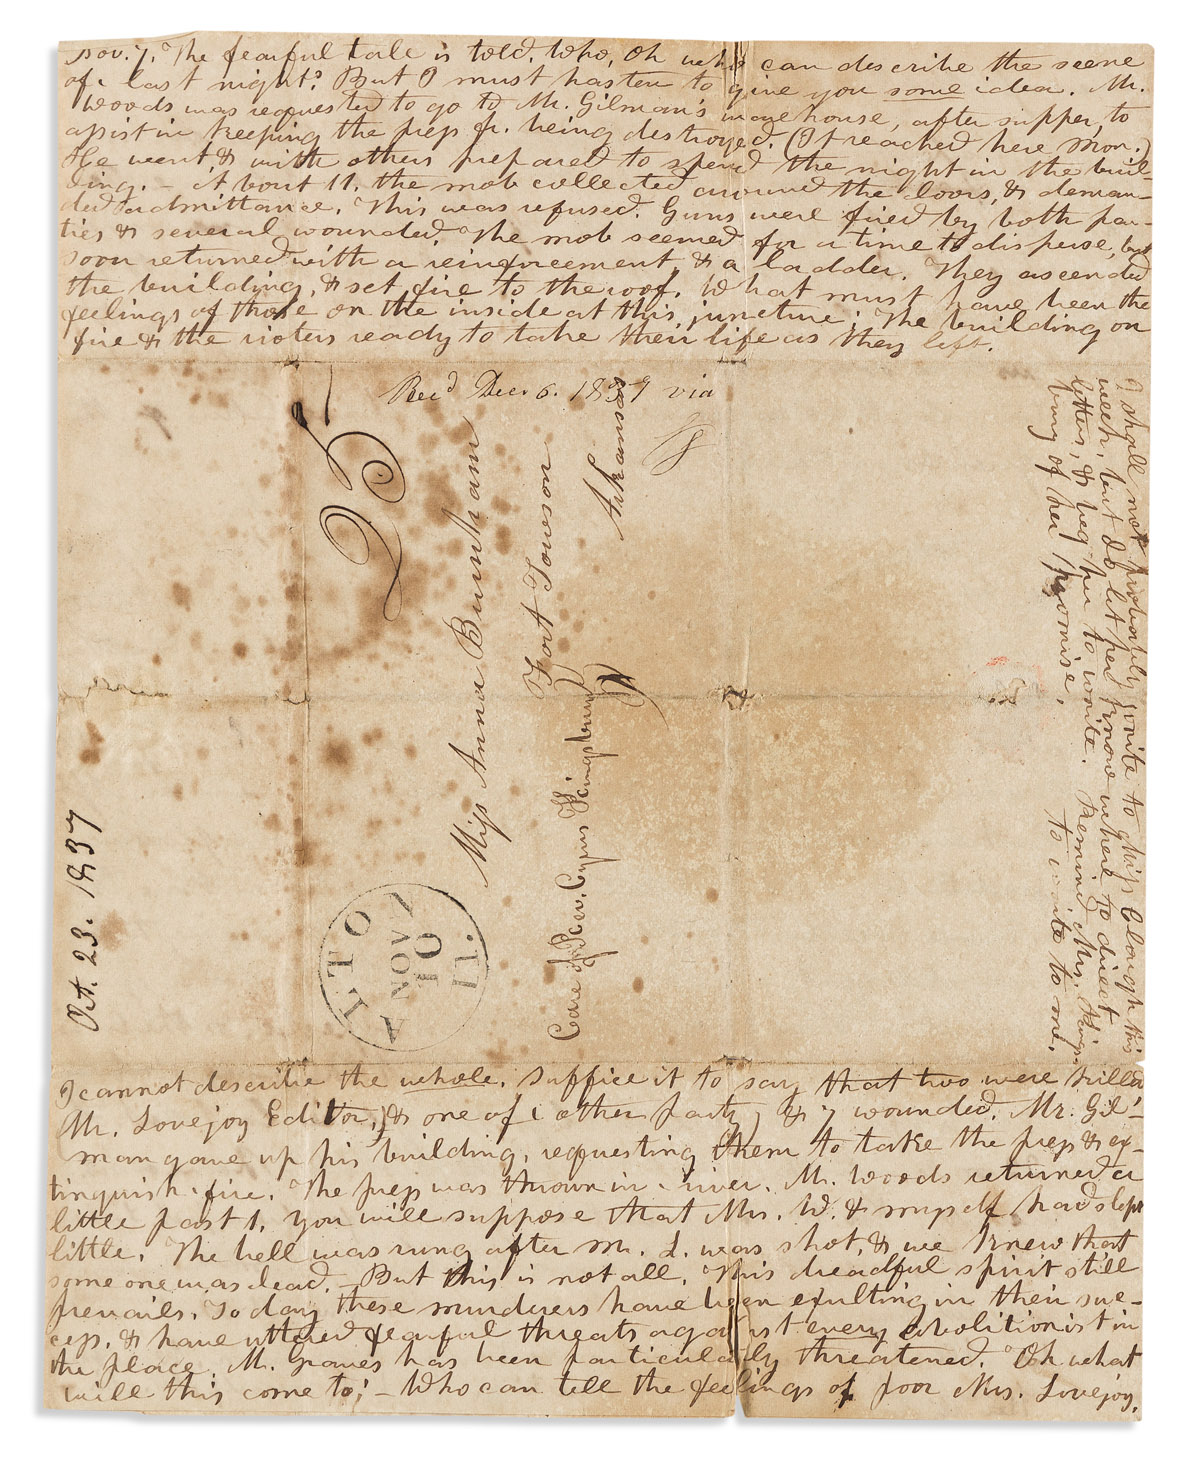 Nov. 7. The fearful tale is told. Who, Oh who can describe the scene
of last night? But I must hasten to give you some idea. Mr.
Woods was requested to go to Mr. Gilman's warehouse, after supper, to
assist in keeping the press fr. being destroyed. (It reached here Mon.)
He went & with others prepared to spend the night in the buil-
ding. – About 11, the mob collected around the doors, & deman-
ded admittance. This was refused. Guns were fired by both par-
ties & several wounded. The mob seemed for a time to disperse, but
soon returned with a reinforcement & a ladder. They ascended
the building, & set fire to the roof. What must have been the
feelings of those on the inside at this juncture; The building on
fire & the rioters ready to take their life as they left.
Rec'd Decr 6. 1837 via
25
Miss Anna Burnham
Fort Towson
Arkansas
Care of Rev. Cyrus Kingsbury
ALTON
NOV
10
Il.
Oct. 23. 1837
I shall not probably write to Miss Clough this
week, but do let her know where to direct
letters, & beg her to write. Remind Mrs. Kings-
bury of her promise, to write to me.
I cannot describe the whole. Suffice it to say that two were killed
Mr. Lovejoy Editor, & one of other party, & 7 wounded. Mr. Gil-
man gave up his building, requesting them to take the press & ex-
tinguish fire. The press was thrown in river. Mr. Woods returned a
little past 1. You will suppose that Mrs. W. & myself had slept
little. The bell was rung after Mr. L. was shot, & we knew that
some one was dead. – But this is not all. This dreadful spirit still
prevails. To day these murderers have been exulting in their suc-
cess, & have uttered fearful threats against every abolitionist in
the place. Mr. Graves has been particularly threatened. Oh what
will this come to; – Who can tell the feelings of poor Mrs. Lovejoy.